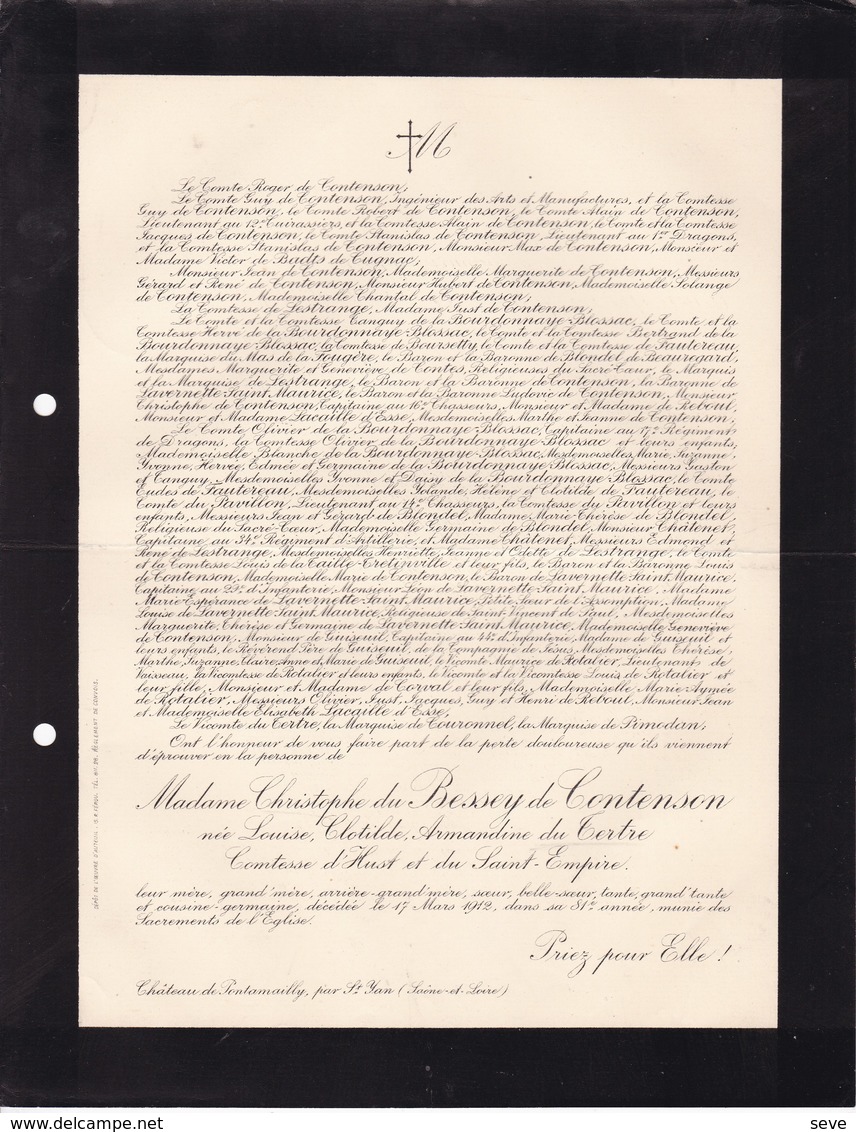 M
Le Comte Roger de Contenson,
Le Comte Guy de Contenson, Ingénieur des Arts et Manufactures, et la Comtesse
Guy de Contenson, le Comte Robert de Contenson, le Comte Alain de Contenson,
Lieutenant au 12e Cuirassiers, et la Comtesse Alain de Contenson, le Comte et la Comtesse
Jacques de Contenson, le Comte Stanislas de Contenson, Lieutenant au 1er Dragons,
et la Comtesse Stanislas de Contenson, Monsieur Max de Contenson, Monsieur et
Madame Victor de Budts de Cugnac;
Monsieur Jean de Contenson, Mademoiselle Marguerite de Contenson, Messieurs
Gérard et René de Contenson, Monsieur Hubert de Contenson, Mademoiselle Solange
de Contenson, Mademoiselle Chantal de Contenson;
La Comtesse de Lestrange, Madame Just de Contenson;
Le Comte et la Comtesse Tanguy de la Bourdonnaye-Blossac, le Comte et la
Comtesse Hervé de la Bourdonnaye-Blossac, le Comte et la Comtesse Bertrand de la
Bourdonnaye-Blossac, la Comtesse de Boursetty, le Comte et la Comtesse de Fautereau,
la Marquise du Mas de la Fougère, le Baron et la Baronne de Blondel de Beauregard,
Mesdames Marguerite et Geneviève de Contes, Religieuses du Sacré-Cœur, le Marquis
et la Marquise de Lestrange, le Baron et la Baronne de Contenson, la Baronne de
Lavernette Saint Maurice, le Baron et la Baronne Ludovic de Contenson, Monsieur
Christophe de Contenson, Capitaine au 16e Chasseurs, Monsieur et Madame de Reboul,
Monsieur et Madame Lacaille d'Esse, Mesdemoiselles Marthe et Jeanne de Contenson;
Le Comte Olivier de la Bourdonnaye-Blossac, Capitaine au 17e Régiment
de Dragons, la Comtesse Olivier de la Bourdonnaye-Blossac et leurs enfants,
Mademoiselle Blanche de la Bourdonnaye-Blossac, Mesdemoiselles Marie, Suzanne,
Yvonne, Hervée, Edmée et Germaine de la Bourdonnaye-Blossac, Messieurs Gaston
et Tanguy, Mesdemoiselles Yvonne et Daisy de la Bourdonnaye-Blossac, le Comte
Eudes de Fautereau, Mesdemoiselles Yolande, Hélène et Clotilde de Fautereau, le
Comte du Pavillon, Lieutenant au 14e Chasseurs, la Comtesse du Pavillon et leurs
enfants, Messieurs Jean et Gérard de Blondel, Madame Marie-Thérèse de Blondel,
Religieuse du Sacré-Cœur, Mademoiselle Germaine de Blondel, Monsieur Châtenet,
Capitaine au 34e Régiment d'Artillerie, et Madame Châtenet, Messieurs Edmond et
René de Lestrange, Mesdemoiselles Henriette, Jeanne et Odette de Lestrange, le Comte
et la Comtesse Louis de la Taille-Tretinville et leur fils, le Baron et la Baronne Louis
de Contenson, Mademoiselle Marie de Contenson, le Baron de Lavernette Saint Maurice,
Capitaine au 29e d'Infanterie, Monsieur Léon de Lavernette Saint Maurice, Madame
Marie Espérance de Lavernette Saint Maurice, Petite Sœur de l'Assomption, Madame
Louise de Lavernette Saint Maurice, Religieuse de Saint Vincent de Paul, Mesdemoiselles
Marguerite, Thérèse et Germaine de Lavernette Saint Maurice, Mademoiselle Geneviève
de Contenson, Monsieur de Guiseuil, Capitaine au 44e d'Infanterie, Madame de Guiseuil et
leurs enfants, le Révérend Père de Guiseuil, de la Compagnie de Jésus, Mesdemoiselles Thérèse,
Marthe, Suzanne, Claire, Anne et Marie de Guiseuil, le Vicomte Maurice de Rotalier, Lieutenant de
Vaisseau, la Vicomtesse de Rotalier et leurs enfants, le Vicomte et la Vicomtesse Louis de Rotalier et
leur fille, Monsieur et Madame de Corval et leur fils, Mademoiselle Marie Aymée
de Rotalier, Messieurs Olivier, Just, Jacques, Guy et Henri de Reboul, Monsieur Jean
et Mademoiselle Elisabeth Lacaille d'Esse;
Le Vicomte du Tertre, la Marquise de Couronnel, la Marquise de Pimodan;
Ont l'honneur de vous faire part de la perte douloureuse qu'ils viennent
d'éprouver en la personne de
Madame Christophe du Bessey de Contenson
née Louise, Clotilde, Armandine du Tertre
Comtesse d'Hust et du Saint-Empire.
leur mère, grand'mère, arrière-grand'mère, sœur, belle-sœur, tante, grand'tante
et cousine-germaine, décédée le 17 Mars 1912, dans sa 81e année, munie des
Sacrements de l'Eglise.
Priez pour Elle !
Château de Pontamailly, par St Yan (Saône-et-Loire)
DÉPÔT DE L'ŒUVRE D'AUTEUIL RÈGLEMENT DE CONVOIS.
seve